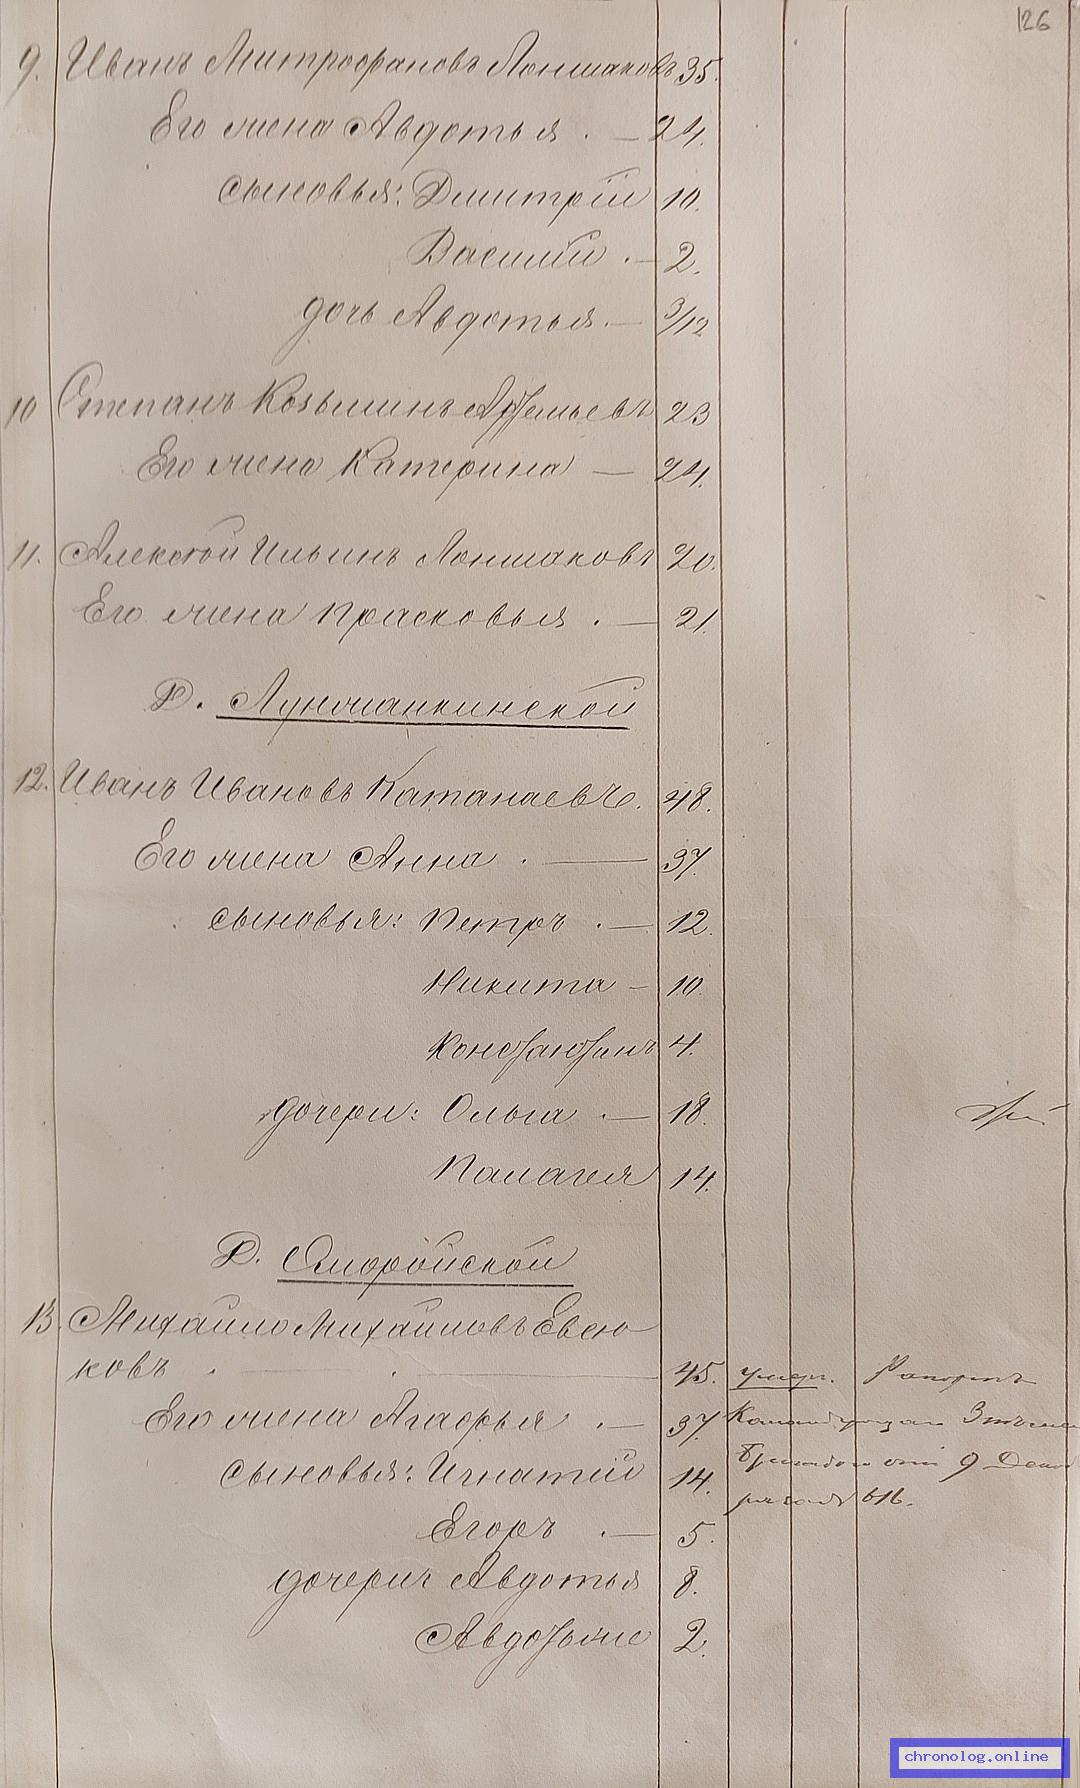 126
9. Иванъ Митрофановъ Лоншаковъ 35.
Его жена Авдотья . — 24.
сыновья: Дмитрій 10.
Василій . — 2.
дочь Авдотья . — 3/12
10 Степанъ Козьминъ Артемьевъ 23
Его жена Катерина — 24.
11. Алексѣй Ильинъ Лоншаковъ 20.
Его жена Прасковья . — 21.
Д. Лунжанкинской
12. Иванъ Ивановъ Катанаевъ. 48.
Его жена Анна . — 37.
сыновья: Петръ . — 12.
Никита — 10.
Константинъ 4.
дочери: Ольга . — 18.
Палагея 14.
Д.
13. Михайло Михайловъ Евсю-
ковъ . — 45. умеръ. Рапортъ
Его жена Агафья . — 37.
сыновья: Игнатій 14.
№ 616.
Егоръ . — 5.
дочери: Авдотья 8.
Авдотья же 2.
chronolog.online